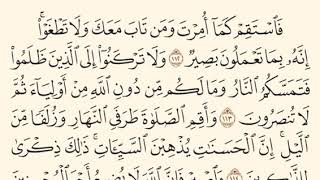 فَٱسۡتَقِمۡ كَمَآ أُمِرۡتَ وَمَن تَابَ مَعَكَ وَلَا تَطۡغَوۡاْۚ
إِنَّهُۥ بِمَا تَعۡمَلُونَ بَصِيرٞ ١١٢ وَلَا تَرۡكَنُوٓاْ إِلَى ٱلَّذِينَ ظَلَمُواْ
فَتَمَسَّكُمُ ٱلنَّارُ وَمَا لَكُم مِّن دُونِ ٱللَّهِ مِنۡ أَوۡلِيَآءَ ثُمَّ
لَا تُنصَرُونَ ١١٣ وَأَقِمِ ٱلصَّلَوٰةَ طَرَفَيِ ٱلنَّهَارِ وَزُلَفٗا مِّنَ
ٱلَّيۡلِۚ إِنَّ ٱلۡحَسَنَٰتِ يُذۡهِبۡنَ ٱلسَّيِّـَٔاتِۚ ذَٰلِكَ ذِكۡرَىٰ